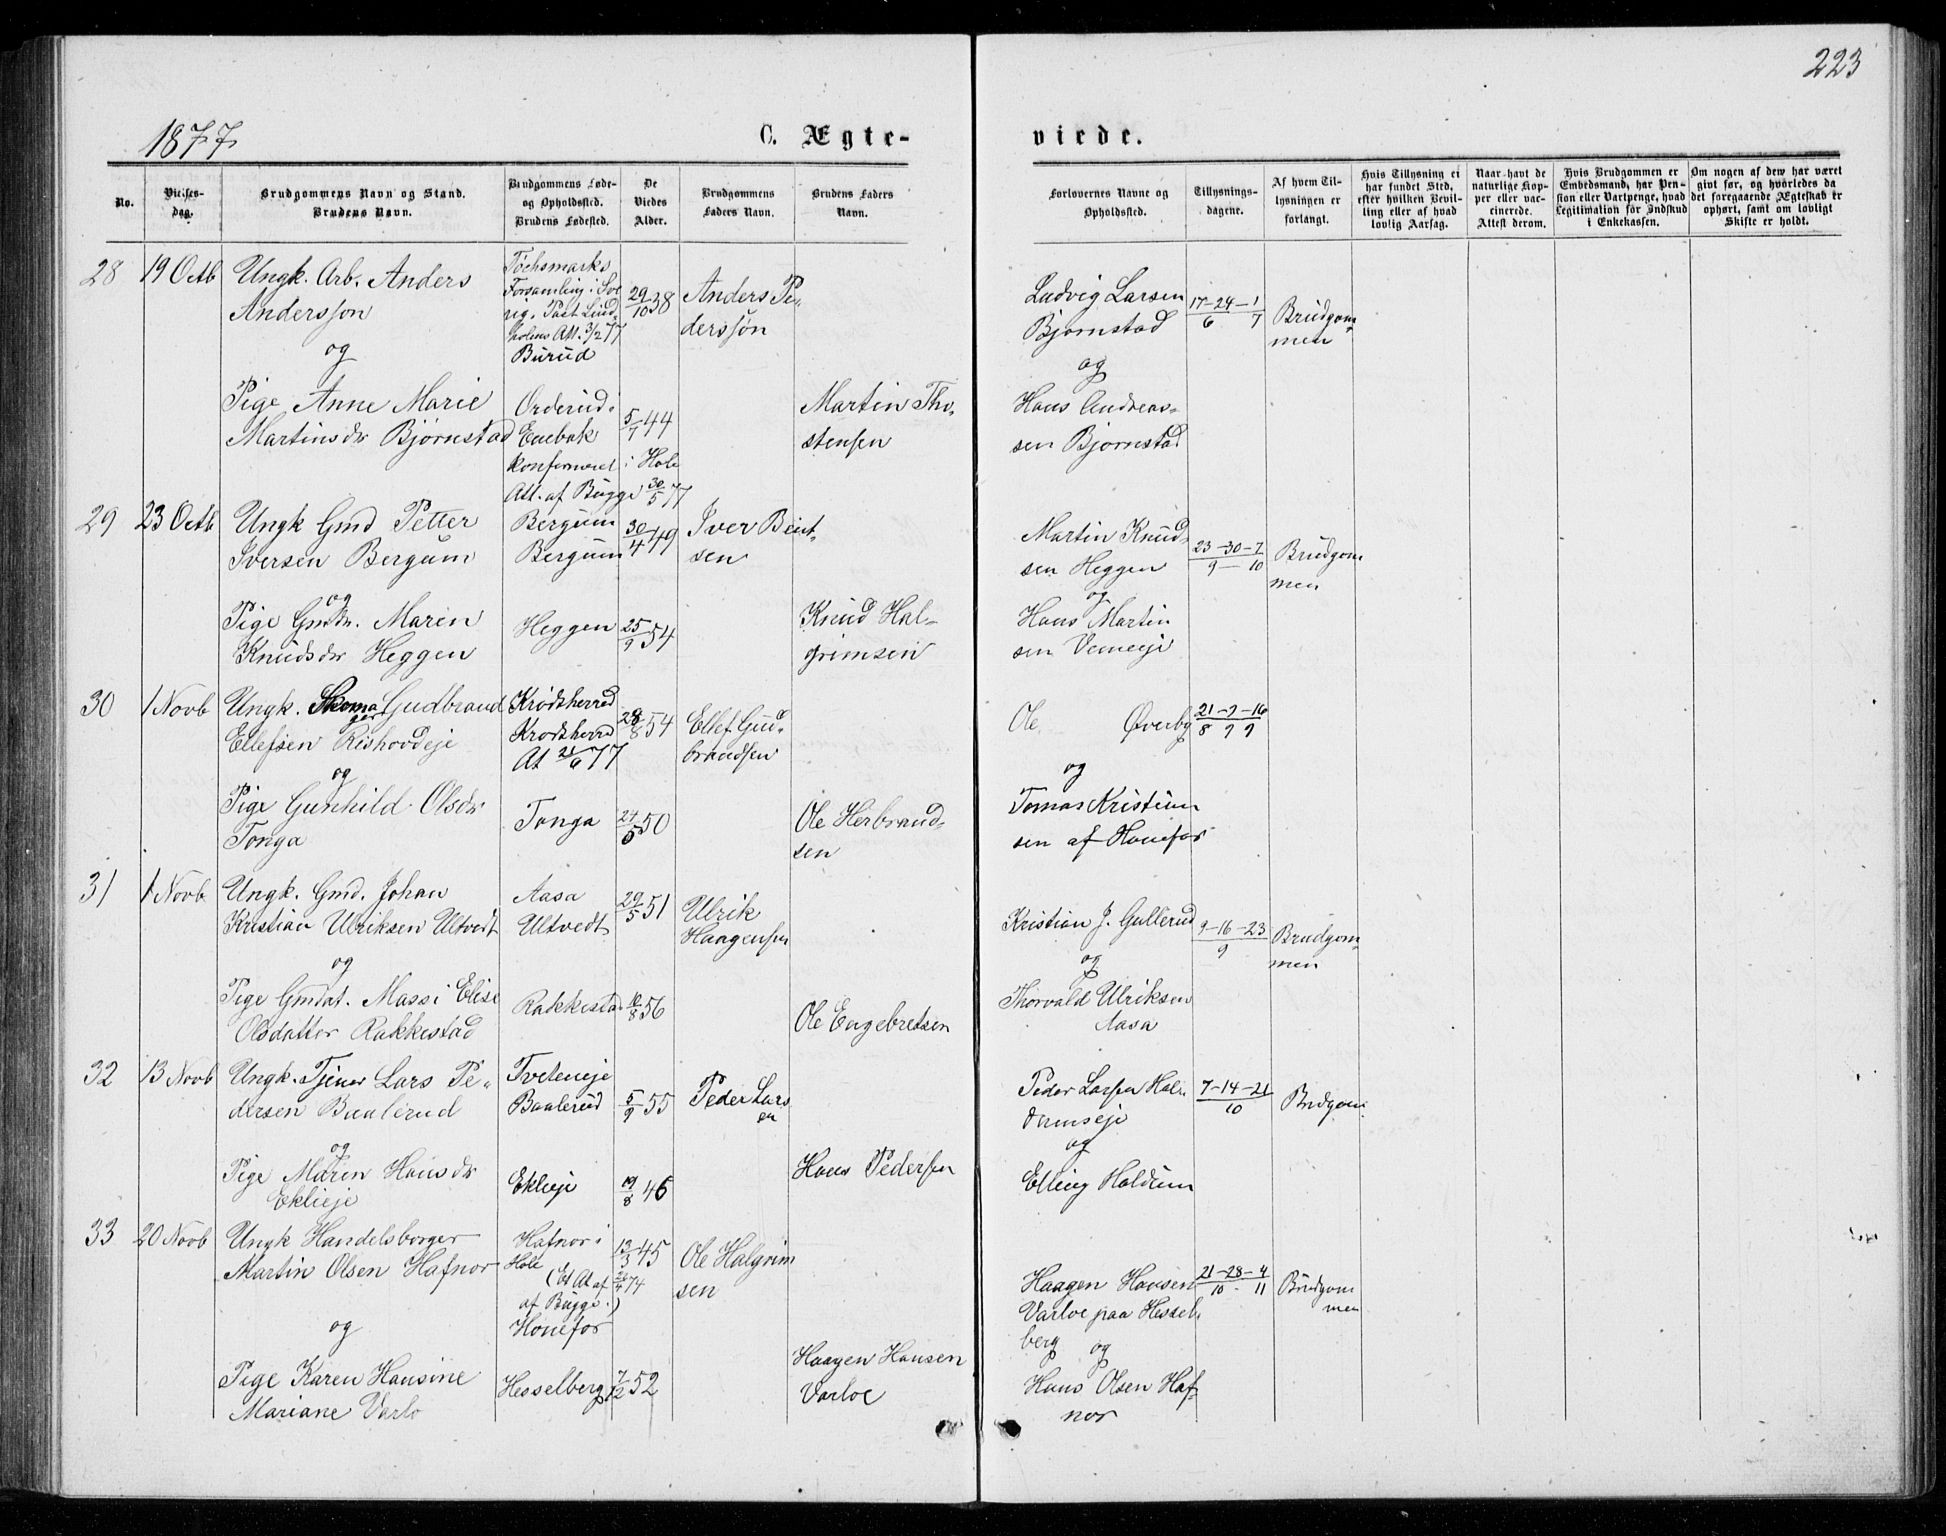 223
1877
C. Ægte-
viede.
No.
Vielses-
dag.
Brudgommens Navn og Stand.
Brudens Navn.
Brudgommens Føde-
og Opholdssted.
Brudens Fødested.
De
Viedes
Alder.
Brudgommens
Faders Navn.
Brudens Faders
Navn.
Forlovernes Navne og
Opholdssted.
Tillysnings-
dagene.
Af hvem Til-
lysningen er
forlangt.
Hvis Tillysning ei
har fundet Sted,
efter hvilken Bevil-
ling eller af hvad
lovlig Aarsag.
Naar havt de
naturlige Kop-
per eller vac-
cinerede.
Attest derom.
Hvis Brudgommen er
Embedsmand, har Pen-
sion eller Vartpenge, hvad
Legitimation for Indskud
i Enkekassen.
Om nogen af dem har været
givt før, og hvorledes da
det foregaaende Ægteskab er
ophørt, samt om lovligt
Skifte er holdt.
28
19 Octb
Ungk. Arb. Anders
Anderssøn
og
Pige Anne Marie
Martinsdr Bjørnstad
Töchsmarks
Forsamling i Sve
rig. Past Lind-
holms Att. 3/2 77
Burud
Orderud i
Enebak
konfirmeret i Hole
Att. af Bugge 30/5 77
29/10 38
5/7 44
Anders Pe-
derssøn
Martin Tho-
stensen
Ludvig Larsen
Bjørnstad
og
Hans Andreas-
sen Bjørnstad
17-24-1
6 7
Brudgom
men
29
23 Octb
Ungk Gmd Petter
Iversen Bergum
og
Pige Gmdr. Maren
Knudsdr Heggen
Bergum
Bergum
Heggen
30/4 49
25/9 54
Iver Bent-
sen
Knud Hal-
grimsen
Martin Knud-
sen Heggen
og
Hans Martin
sen Vemeeje
23-30-7
9 — 10
Brudgom
men
30
1 Novb
Ungk. Skoma Gudbrand
ger
Ellefsen Rishovdeje
og
Pige Gunhild Olsdr
Tonga
Krødsherred
Krødsherred
At 21/6 77
Tonga
28/8 54
24/5 50
Ellef Gud-
brandsen
Ole Herbrand-
sen
Ole Øverby
og
Tomas Kristian
sen af Hønefos
21-9-16
8 9 9
31
1 Novb
Ungk. Gmd. Johan
Kristian Ulriksen Ultvedt
og
Pige Gmdat. Massi Elise
Olsdatter Rakkestad
Aasa
Ultvedt
Rakkestad
29/5 51
10/8 56
Ulrik
Haagensen
Ole Engebretsen
Kristian J. Gullerud
og
Thorvald Ulriksen
Aasa
9-16-23
9
Brudgom
men
32
13 Novb
Ungk. Tjener Lars Pe-
dersen Baalerud
og
Pige Maren Hansdr
Eklieje
Tveteneje
Baalerud
Eklieje
5/9 55
19/8 46
Peder Lars
en
Hans Pedersen
Peder Larsen Hol-
dumseje
og
Elling Holdum
7-14-21
10
Brudgom
33
20 Novb
Ungk Handelsborger
Martin Olsen Hafnor
og
Pige Karen Hansine
Mariane Varlo
Hafnor i
Hole
(Et At af
af Bugge.)
Hønefos
Hesselberg
13/3 45
7/2 52
Ole Halgrim
sen
Haagen Hansen
Varloe
Haagen Hansen
Varloe paa Hessel-
berg og
Hans Olsen Haf-
nor
21-28-4
10 - 11
Brudgom
men